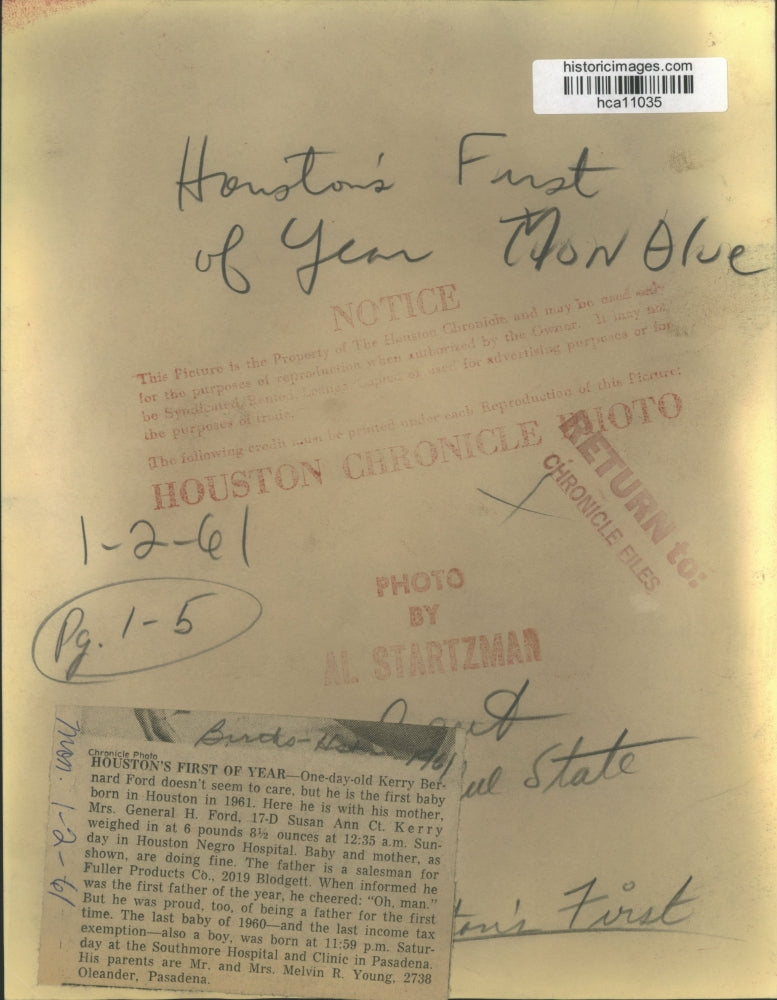 historicimages.com
hca11035
Houston's First
of Year Mon Blue
NOTICE
This Picture is the Property of The Houston Chronicle and may be used only
for the purposes of reproduction when authorized by the Owner. It may not
be Syndicated, Rented, Loaned, Copied or used for advertising purposes or for
the purposes of trade.
The following credit must be printed under each Reproduction of this Picture:
HOUSTON CHRONICLE PHOTO
RETURN to:
CHRONICLE FILES
1-2-61
Pg. 1-5
PHOTO
BY
AL STARTZMAN
State
Births-
1961
Mon. 1-2-61
Chronicle Photo
HOUSTON'S FIRST OF YEAR—One-day-old Kerry Ber-
nard Ford doesn't seem to care, but he is the first baby
born in Houston in 1961. Here he is with his mother,
Mrs. General H. Ford, 17-D Susan Ann Ct. Kerry
weighed in at 6 pounds 8½ ounces at 12:35 a.m. Sun-
day in Houston Negro Hospital. Baby and mother, as
shown, are doing fine. The father is a salesman for
Fuller Products Co., 2019 Blodgett. When informed he
was the first father of the year, he cheered: "Oh, man."
But he was proud, too, of being a father for the first
time. The last baby of 1960—and the last income tax
exemption—also a boy, was born at 11:59 p.m. Satur-
day at the Southmore Hospital and Clinic in Pasadena.
His parents are Mr. and Mrs. Melvin R. Young, 2738
Oleander, Pasadena.
ton's First